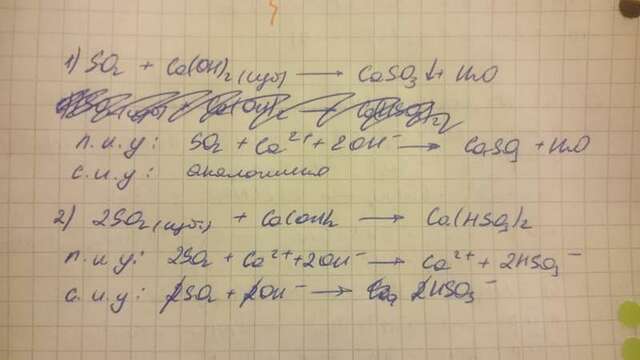 1) SO₂ + Ca(OH)₂ (изб) → CaSO₃↓ + H₂O
п.и.у: SO₂ + Ca²⁺ + 2OH⁻ → CaSO₃ + H₂O
с.и.у: аналогично
2) 2SO₂ (изб.) + Ca(OH)₂ → Ca(HSO₃)₂
п.и.у: 2SO₂ + Ca²⁺ + 2OH⁻ → Ca²⁺ + 2HSO₃⁻
с.и.у: SO₂ + OH⁻ → HSO₃⁻